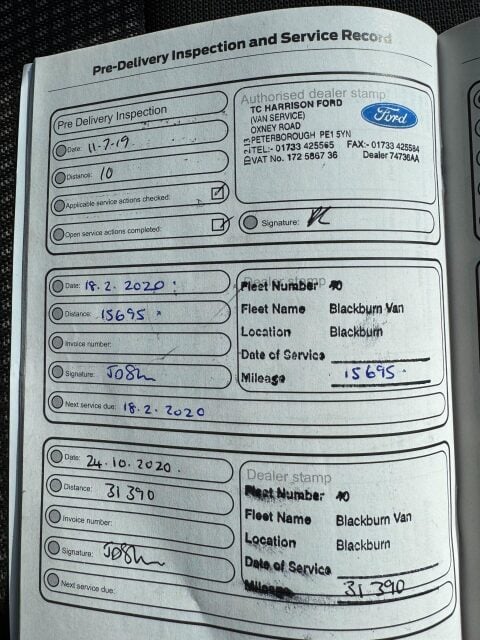 Pre-Delivery Inspection and Service Record
Pre Delivery Inspection
Date: 11-7-19
Distance: 10
Applicable service actions checked:
Open service actions completed:
Authorised dealer stamp
TC HARRISON FORD
(VAN SERVICE)
OXNEY ROAD
PETERBOROUGH PE1 5YN
TEL:- 01733 425565 FAX:- 01733 425584
VAT No. 172 5867 36 Dealer 74736AA
Ford
Signature:
Date: 18.2.2020
Distance: 15695
Invoice number:
Signature: JOSh
Next service due: 18.2.2020
Dealer stamp
Fleet Number 40
Fleet Name Blackburn Van
Location Blackburn
Date of Service
Mileage 15695
Date: 24.10.2020.
Distance: 31390
Invoice number:
Signature: JOSh
Next service due:
Dealer stamp
Fleet Number 40
Fleet Name Blackburn Van
Location Blackburn
Date of Service
Mileage 31390